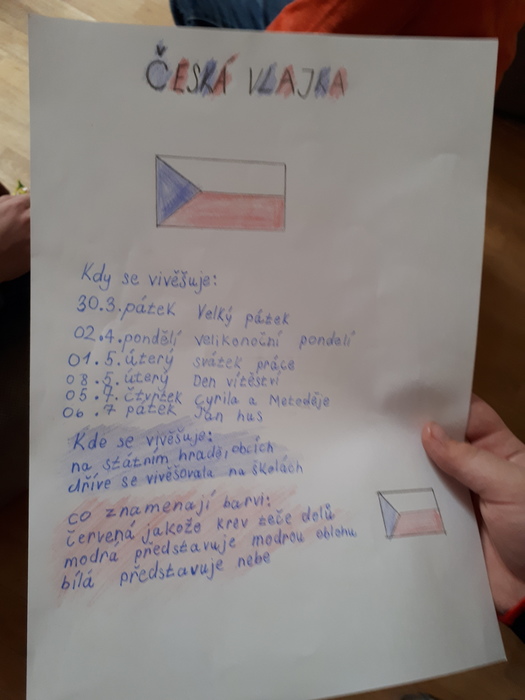 ČESKÁ VLAJKA
Kdy se vivěšuje:
30.3. pátek Velký pátek
02.4. pondělí velikonoční pondelí
01.5. úterý svátek práce
08.5. úterý Den vítěství
05.7. čtvrtek Cyrila a Metoděje
06.7 pátek Jan hus
Kde se vivěšuje:
na státním hradě, obcích
dříve se vivěšovala na školách
co znamenají barvi:
červená jakožo krev teče dolů
modrá představuje modrou oblohu
bílá představuje nebe